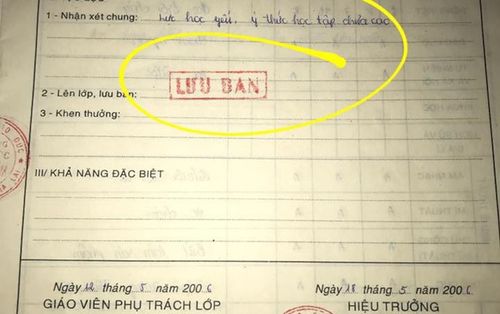 1 - Nhận xét chung: Lực học yếu, ý thức học tập chưa cao
LƯU BAN
2 - Lên lớp, lưu ban:
3 - Khen thưởng:
III/ KHẢ NĂNG ĐẶC BIỆT
Ngày 12 tháng 5 năm 2006 Ngày 18 tháng 5 năm 2006
GIÁO VIÊN PHỤ TRÁCH LỚP HIỆU TRƯỞNG